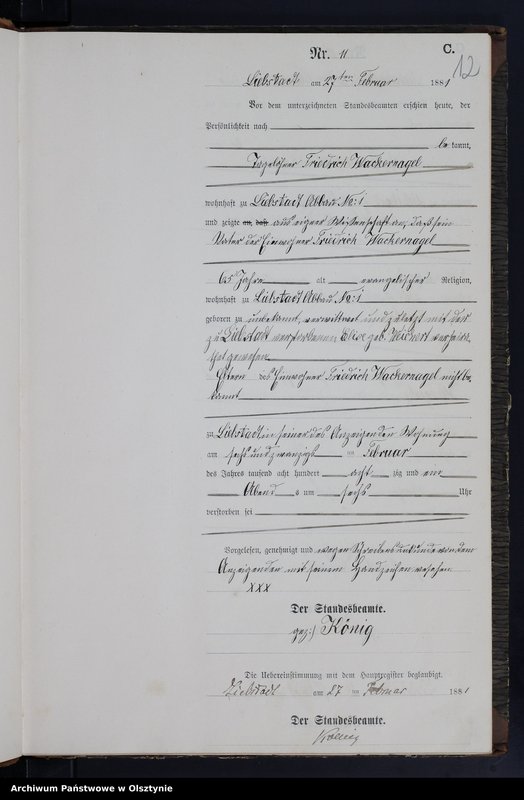 Nr. 11
C.
12
Liebstadt am 27ten Februar 1881
Vor dem unterzeichneten Standesbeamten erschien heute, der
Persönlichkeit nach
be kannt,
Tagelöhner Friedrich Wackernagel
wohnhaft zu Liebstadt Abbau No: 1
und zeigte an, daß aus eigner Wissenschaft an, daß sein
Vater der Einwohner Friedrich Wackernagel
65 Jahre alt evangelischer Religion,
wohnhaft zu Liebstadt Abbau No: 1
geboren zu unbekannt, verwittwet und zuletzt mit der
zu Liebstadt verstorbenen geb. verheira-
thet gewesen
Eltern des Einwohner Friedrich Wackernagel nicht be
kannt
zu Liebstadt in seiner des Anzeigenden Wohnung
am sechs und zwanzigst en Februar
des Jahres tausend acht hundert acht zig und ein
Abend s um sechs Uhr
verstorben sei
Vorgelesen, genehmigt und wegen Schreibensunkunde von dem
Anzeigenden mit seinem Handzeichen versehen.
XXX
Der Standesbeamte.
gez:) König
Die Uebereinstimmung mit dem Hauptregister beglaubigt.
Liebstadt am 27 ten Februar 1881
Der Standesbeamte.
Koenig
Archiwum Państwowe w Olsztynie